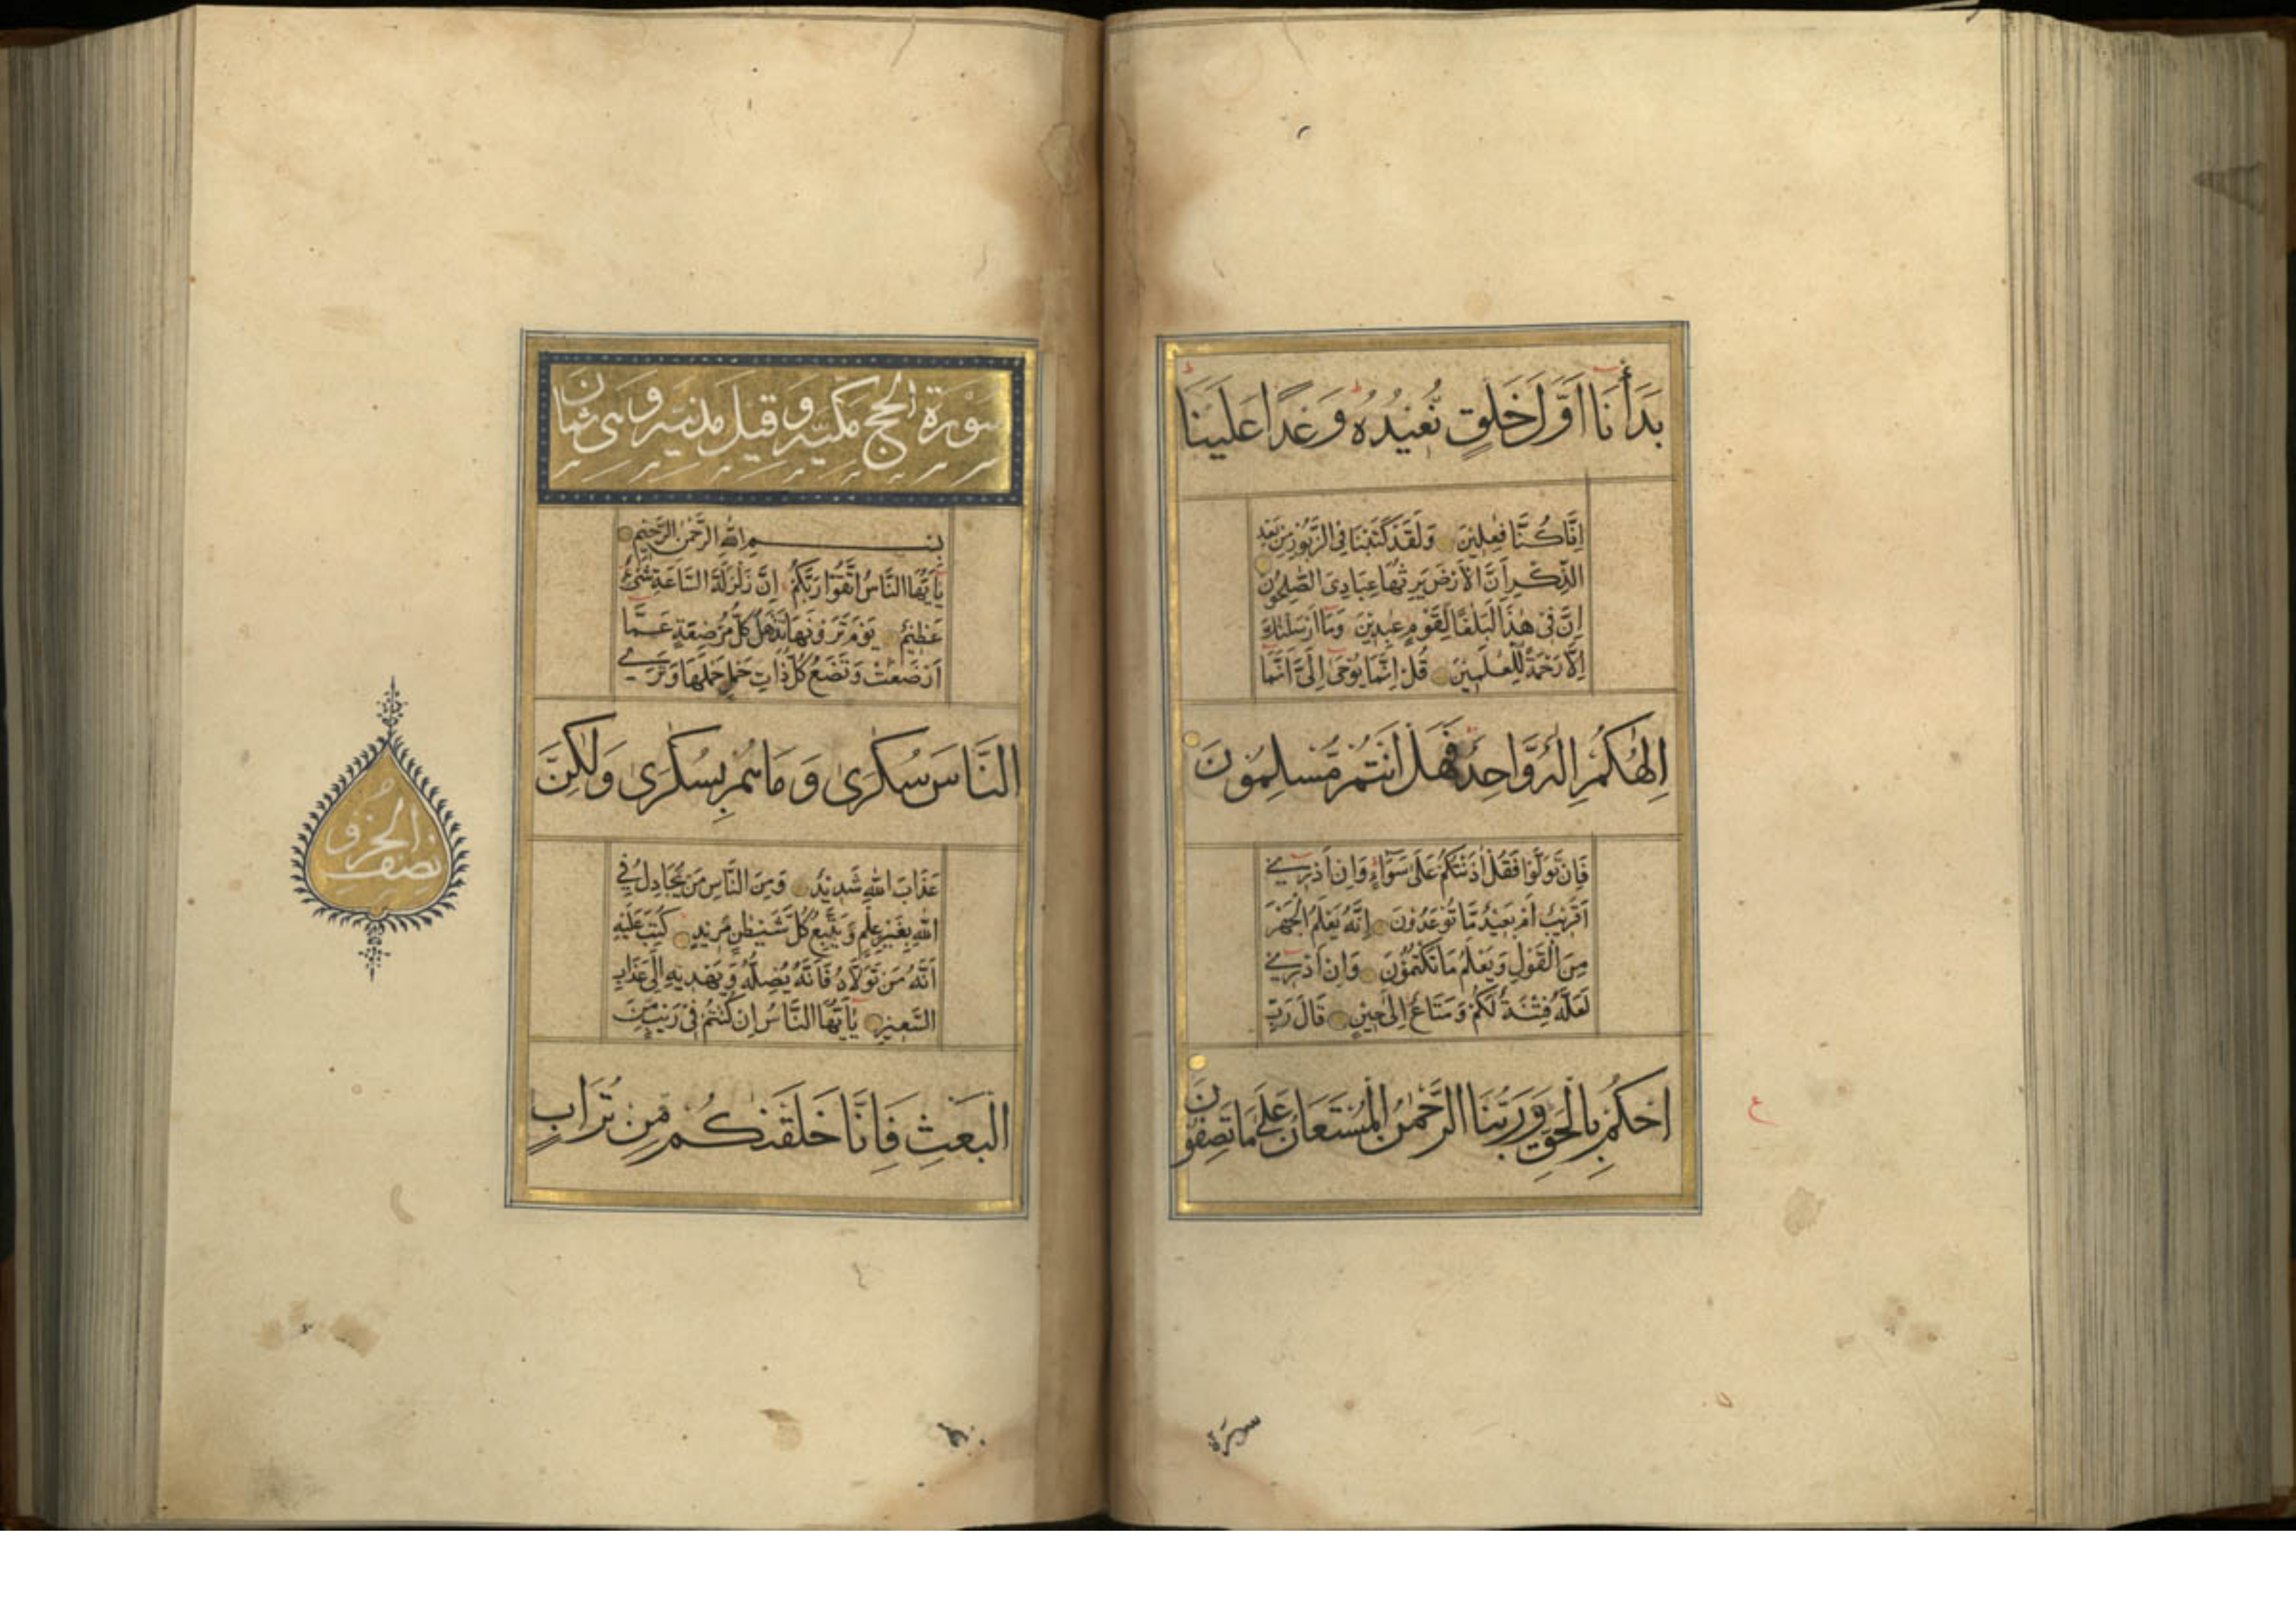 بَدَأْنَا اَوَّلَ خَلْقٍ نُّعِيْدُهٗ وَعْدًا عَلَيْنَا
اِنَّا كُنَّا فٰعِلِيْنَ وَلَقَدْ كَتَبْنَا فِى الزَّبُوْرِ مِنْ بَعْدِ
الذِّكْرِ اَنَّ الْاَرْضَ يَرِثُهَا عِبَادِىَ الصّٰلِحُوْنَ
اِنَّ فِىْ هٰذَا لَبَلٰغًا لِّقَوْمٍ عٰبِدِيْنَ وَمَا اَرْسَلْنٰكَ
اِلَّا رَحْمَةً لِّلْعٰلَمِيْنَ قُلْ اِنَّمَا يُوْحٰى اِلَىَّ اَنَّمَا
اِلٰهُكُمْ اِلٰهٌ وَّاحِدٌ فَهَلْ اَنْتُمْ مُّسْلِمُوْنَ
فَاِنْ تَوَلَّوْا فَقُلْ اٰذَنْتُكُمْ عَلٰى سَوَآءٍ وَاِنْ اَدْرِىْ
اَقَرِيْبٌ اَمْ بَعِيْدٌ مَّا تُوْعَدُوْنَ اِنَّهٗ يَعْلَمُ الْجَهْرَ
مِنَ الْقَوْلِ وَيَعْلَمُ مَا تَكْتُمُوْنَ وَاِنْ اَدْرِىْ
لَعَلَّهٗ فِتْنَةٌ لَّكُمْ وَمَتَاعٌ اِلٰى حِيْنٍ قَالَ رَبِّ
احْكُمْ بِالْحَقِّ وَرَبُّنَا الرَّحْمٰنُ الْمُسْتَعَانُ عَلٰى مَا تَصِفُوْنَ
ع
سورة
سورة الحج مكية وقيل مدنية وهى ثمان
بسم الله الرحمن الرحيم
يٰاَيُّهَا النَّاسُ اتَّقُوْا رَبَّكُمْ اِنَّ زَلْزَلَةَ السَّاعَةِ شَىْءٌ
عَظِيْمٌ يَوْمَ تَرَوْنَهَا تَذْهَلُ كُلُّ مُرْضِعَةٍ عَمَّا
اَرْضَعَتْ وَتَضَعُ كُلُّ ذَاتِ حَمْلٍ حَمْلَهَا وَتَرَى
النَّاسَ سُكٰرٰى وَمَا هُمْ بِسُكٰرٰى وَلٰكِنَّ
عَذَابَ اللّٰهِ شَدِيْدٌ وَمِنَ النَّاسِ مَنْ يُّجَادِلُ فِى
اللّٰهِ بِغَيْرِ عِلْمٍ وَّيَتَّبِعُ كُلَّ شَيْطٰنٍ مَّرِيْدٍ كُتِبَ عَلَيْهِ
اَنَّهٗ مَنْ تَوَلَّاهُ فَاَنَّهٗ يُضِلُّهٗ وَيَهْدِيْهِ اِلٰى عَذَابِ
السَّعِيْرِ يٰاَيُّهَا النَّاسُ اِنْ كُنْتُمْ فِىْ رَيْبٍ مِّنَ
الْبَعْثِ فَاِنَّا خَلَقْنٰكُمْ مِّنْ تُرَابٍ
نصف
الحزب